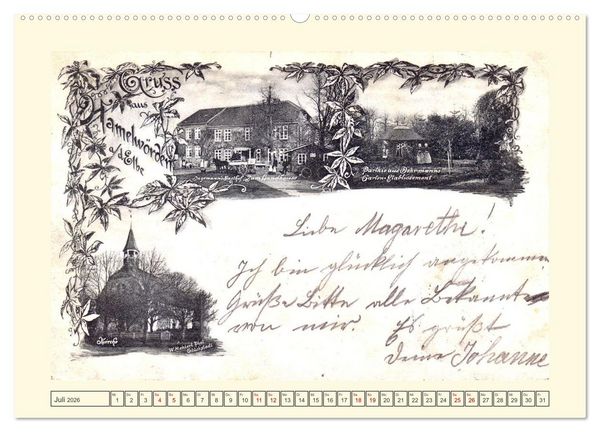 Gruss
aus
Hamelwörden
a/d Elbe
Parthie aus Behrmanns
Garten-Etablissement
Kirche
Liebe Magarethe!
Ich bin glücklich angekommen
Grüße Bitte alle Bekannte
von mir. Es grüßt
deine Johanne
Juli 2026
Mi Do Fr Sa So Mo Di Mi Do Fr Sa So Mo Di Mi Do Fr Sa So Mo Di Mi Do Fr Sa So Mo Di Mi Do Fr
1 2 3 4 5 6 7 8 9 10 11 12 13 14 15 16 17 18 19 20 21 22 23 24 25 26 27 28 29 30 31